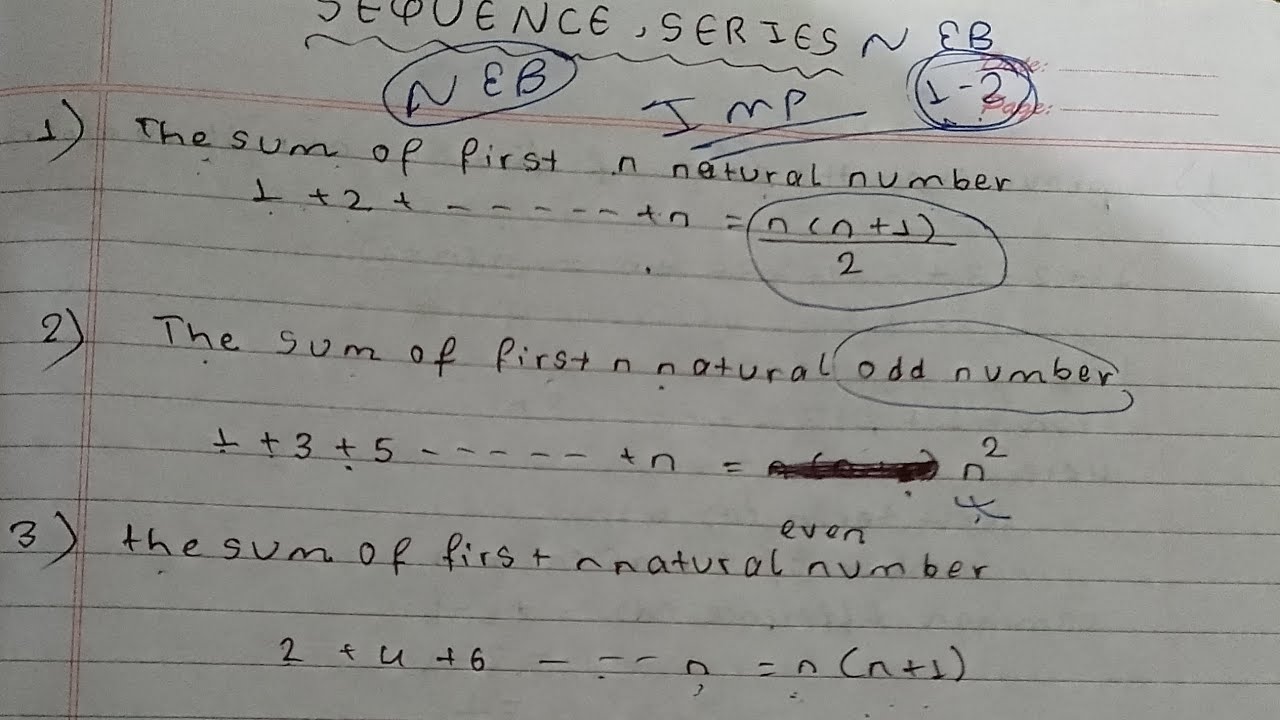 SEQUENCE, SERIES NEB
NEB IMP 1-2
Date:
Page:
1) The sum of first n natural number
1 + 2 + - - - - - - + n = n(n+1)/2
2) The sum of first n natural odd number
1 + 3 + 5 - - - - - - + n = n²
even
3) the sum of first n natural number
2 + 4 + 6 - - - - n = n(n+1)